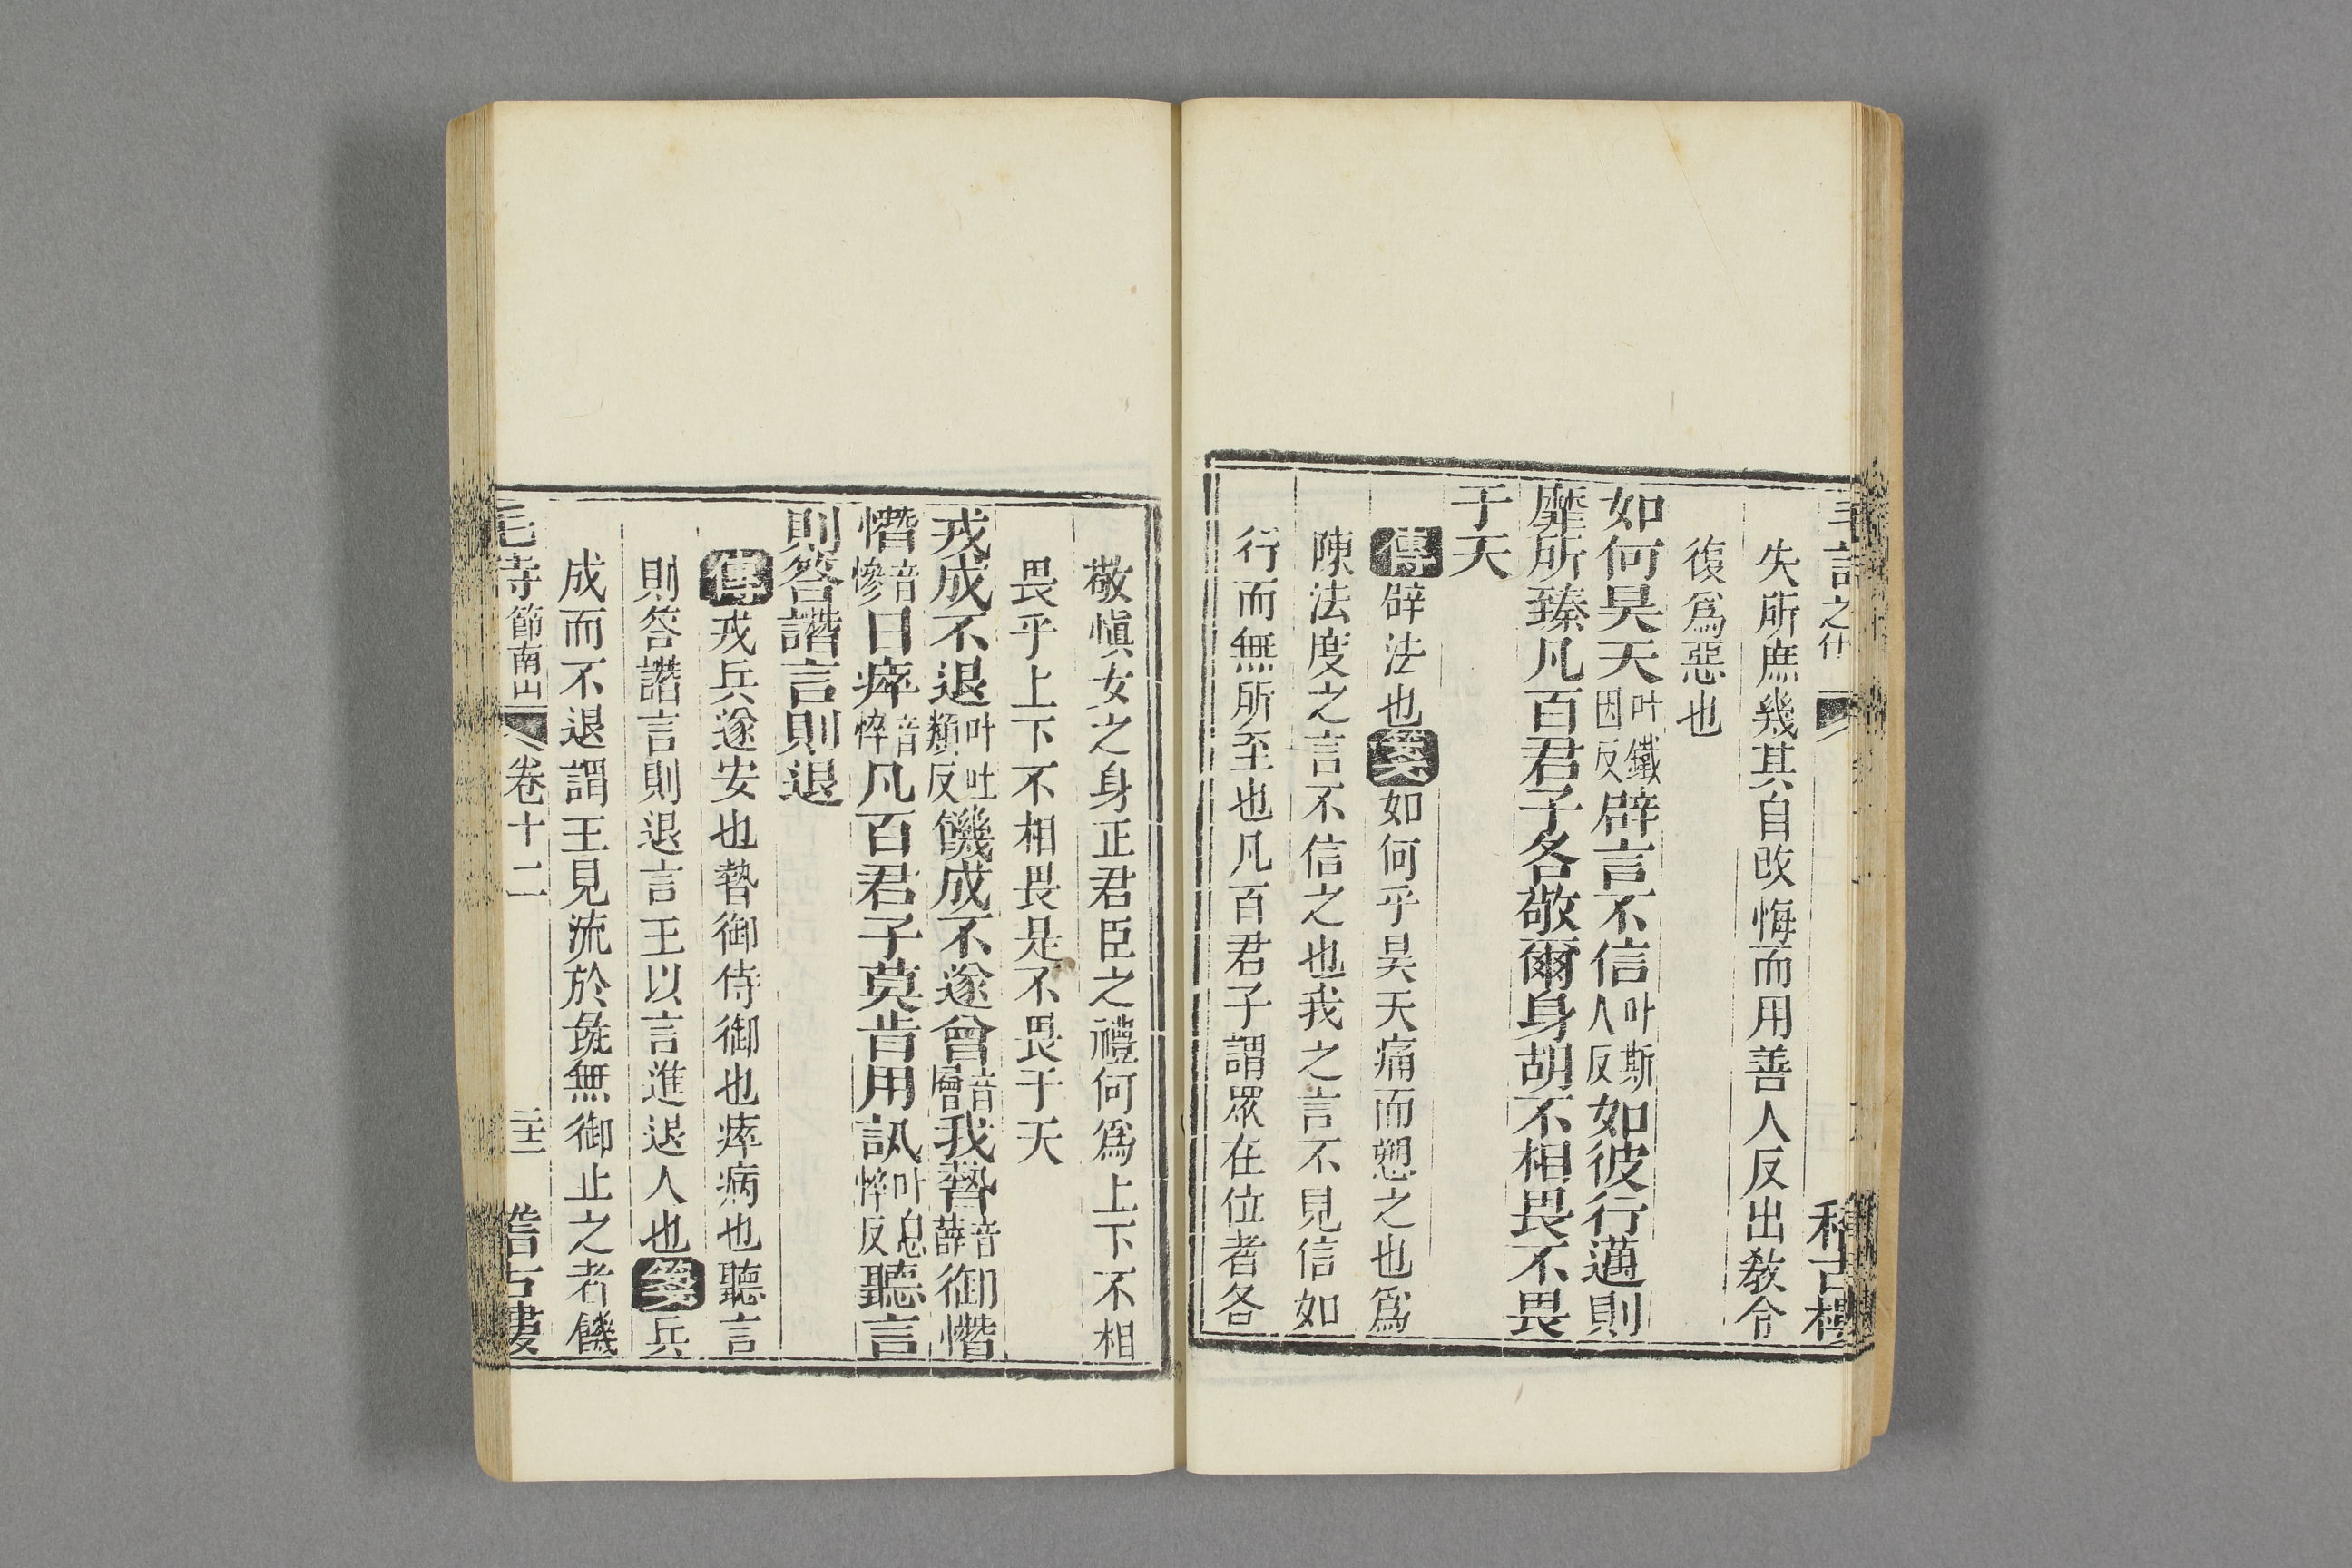 失所庶幾其自改悔而用善人反出教令
復爲惡也
如何昊天叶鐵因反辟言不信叶斯人反如彼行邁則
靡所臻凡百君子各敬爾身胡不相畏不畏
于天
傳辟法也箋如何乎昊天痛而愬之也爲
陳法度之言不信之也我之言不見信如
行而無所至也凡百君子謂眾在位者各
敬愼女之身正君臣之禮何爲上下不相
畏乎上下不相畏是不畏于天
戎成不退叶吐類反饑成不遂曾音層我暬音薛御憯
憯音慘日瘁音悴凡百君子莫肯用訊叶息悴反聽言
則答譖言則退
傳戎兵遂安也暬御侍御也瘁病也聽言
則答譖言則退言王以言進退人也箋兵
成而不退謂王見流於彘無御止之者饑
節南山 卷十二